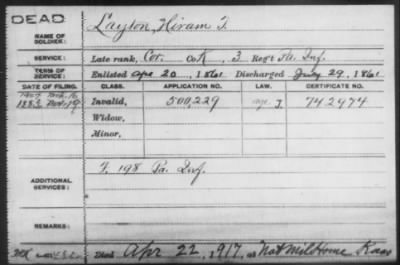 DEAD
NAME OF SOLDIER: Layton, Hiram T.
SERVICE: Late rank, Cor. Co. K, 3 Reg't Pa. Inf.
TERM OF SERVICE: Enlisted Apr 20, 1861 Discharged July 29, 1861
DATE OF FILING. CLASS. APPLICATION NO. LAW. CERTIFICATE NO.
1883 Nov. 19 Invalid, 500,229 742974
Widow,
Minor,
ADDITIONAL SERVICES: F, 198 Pa. Inf.
REMARKS:
Died Apr 22, 1917, at Nat Mil Home Kans